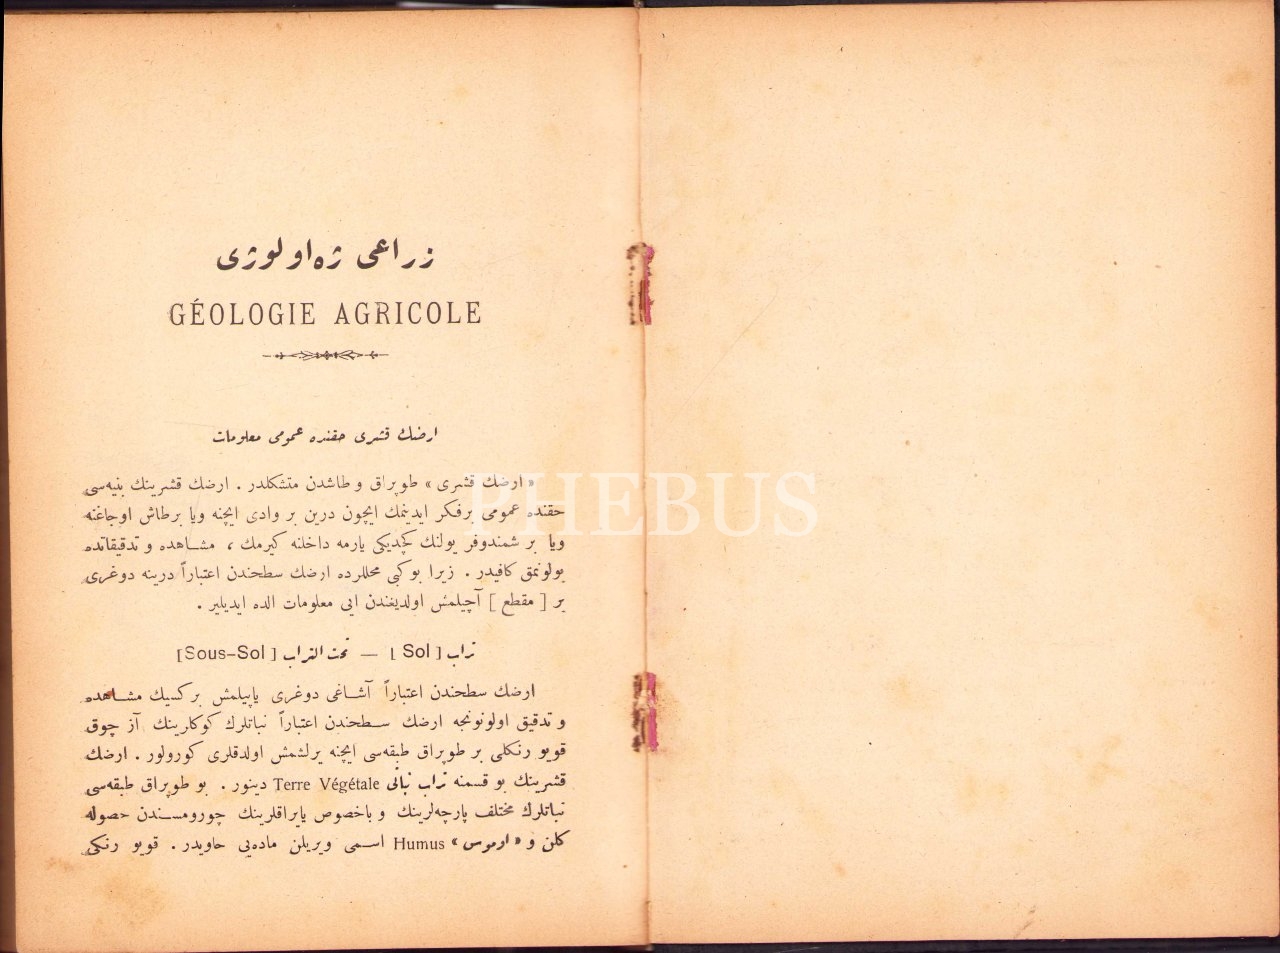 زراعی ژه‌اولوژی
GÉOLOGIE AGRICOLE
ارضك قشری حقنده عمومی معلومات
« ارضك قشری » طوپراق و طاشدن متشكلدر . ارضك قشرینك بنیه‌سی
حقنده عمومی برفكر ایدنمك ایچون درین بر وادی ایچنه ویا برطاش اوجاغنه
ویا بر شمندوفر یولنك كچدیكی یارمه داخلنه كیرمك ، مشاهده و تدقیقاتده
بولونمق كافیدر . زیرا بوكبی محللرده ارضك سطحندن اعتباراً درینه دوغری
بر [ مقطع ] آچیلمش اولدیغندن ایی معلومات الده ایدیلیر .
تراب [ Sol ] — تحت التراب [ Sous-Sol ]
ارضك سطحندن اعتباراً آشاغی دوغری یاپیلمش بركسیك مشاهده
و تدقیق اولونونجه ارضك سطحندن اعتباراً نباتلرك كوكلرینك آز چوق
قویو رنكلی بر طوپراق طبقه‌سی ایچنه یرلشمش اولدقلری كورولور . ارضك
قشرینك بو قسمنه تراب نباتی Terre Végétale دینور . بو طوپراق طبقه‌سی
نباتلرك مختلف پارچه‌لرینك و باخصوص یاپراقلرینك چورومسندن حصوله
كلن و « ارموس » Humus اسمی ویریلن ماده‌یی حاویدر . قویو رنكی
PHEBUS